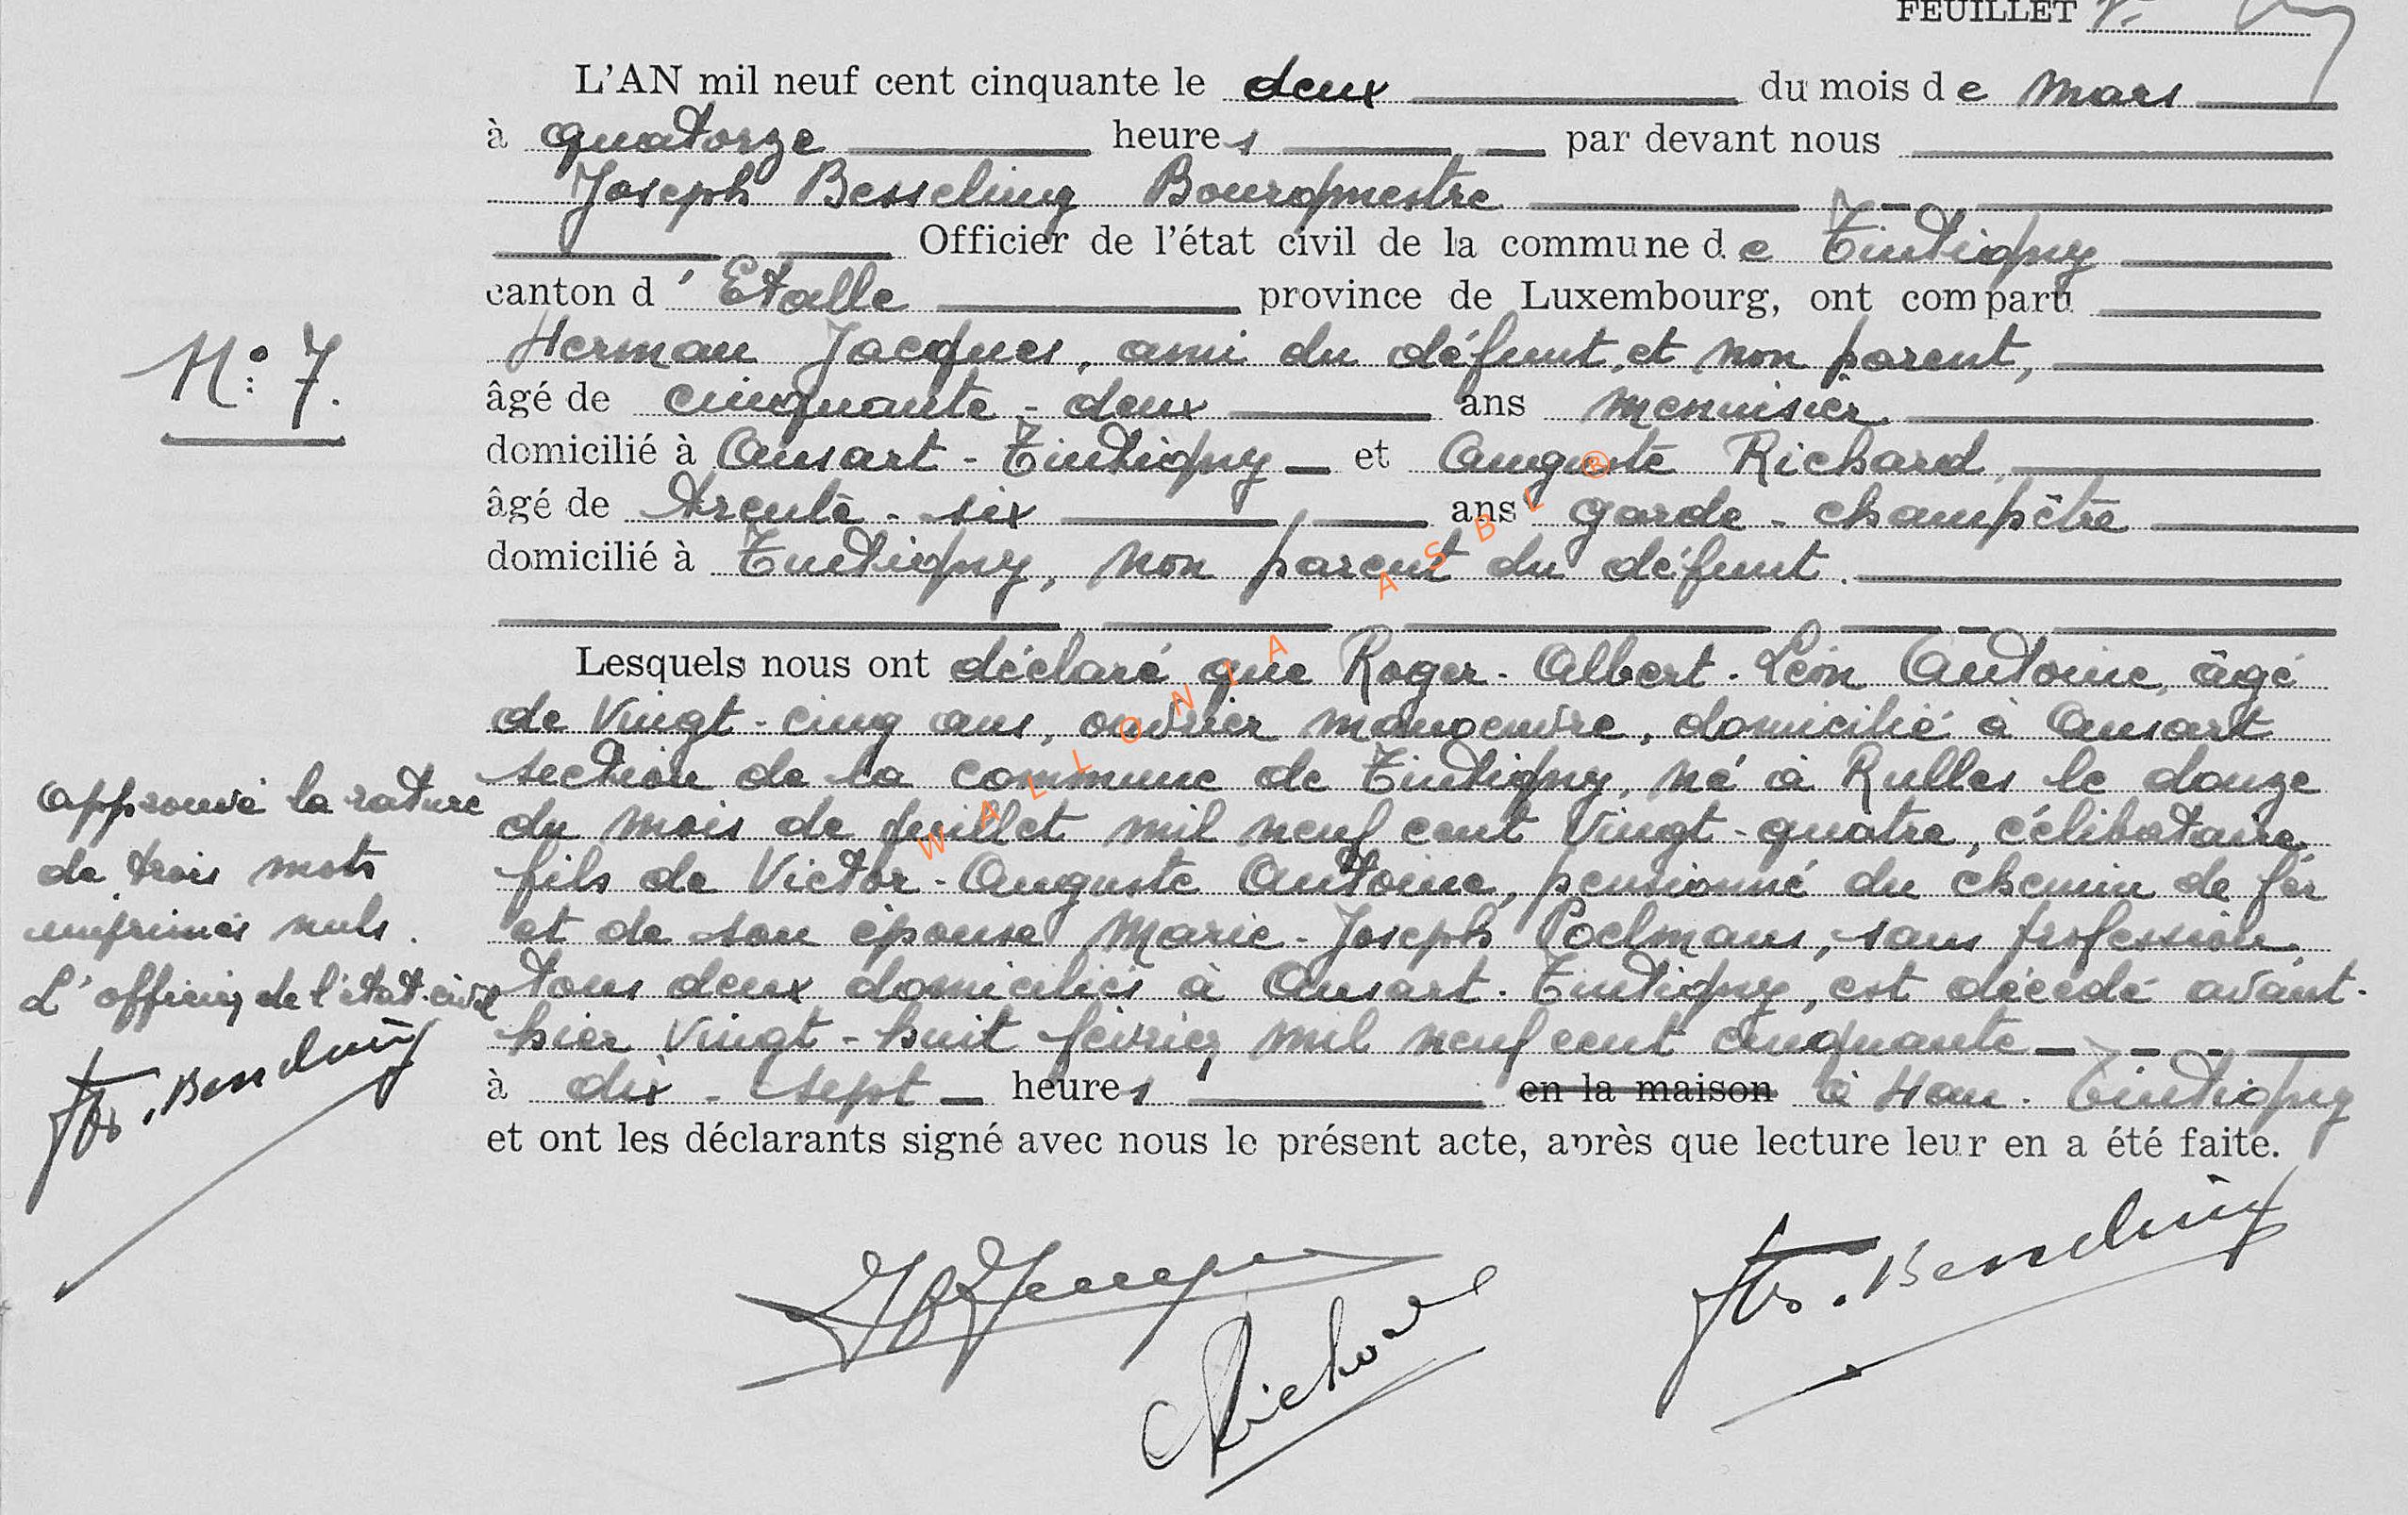 FEUILLET
L'AN mil neuf cent cinquante le deux du mois de Mars
à quatorze heures par devant nous
Joseph Besseling Bourgmestre
Officier de l'état civil de la commune de Tintigny
canton d'Etalle province de Luxembourg, ont comparu
Herman Jacques, ami du défunt, et non parent,
N° 7.
âgé de cinquante-deux ans menuisier
domicilié à Ansart-Tintigny et Auguste Richard,
âgé de trente-six ans garde-champêtre
domicilié à Tintigny, non parent du défunt.
Lesquels nous ont déclaré que Roger-Albert-Léon Antoine, âgé
de vingt-cinq ans, ouvrier manoeuvre, domicilié à Ansart
section de la commune de Tintigny, né à Rulles le douze
du mois de juillet mil neuf cent vingt-quatre, célibataire
fils de Victor-Auguste Antoine, pensionné du chemin de fer
et de son épouse Marie-Joseph Poelmans, sans profession,
tous deux domiciliés à Ansart-Tintigny, est décédé avant-
hier vingt-huit février mil neuf cent cinquante
à dix-sept heures en la maison à Han-Tintigny
et ont les déclarants signé avec nous le présent acte, après que lecture leur en a été faite.
Approuvé la rature
de trois mots
imprimés nuls.
L'officier de l'état-civil
Jos. Besseling
Richard
Jos. Besseling
WALLONIA ASBL ®